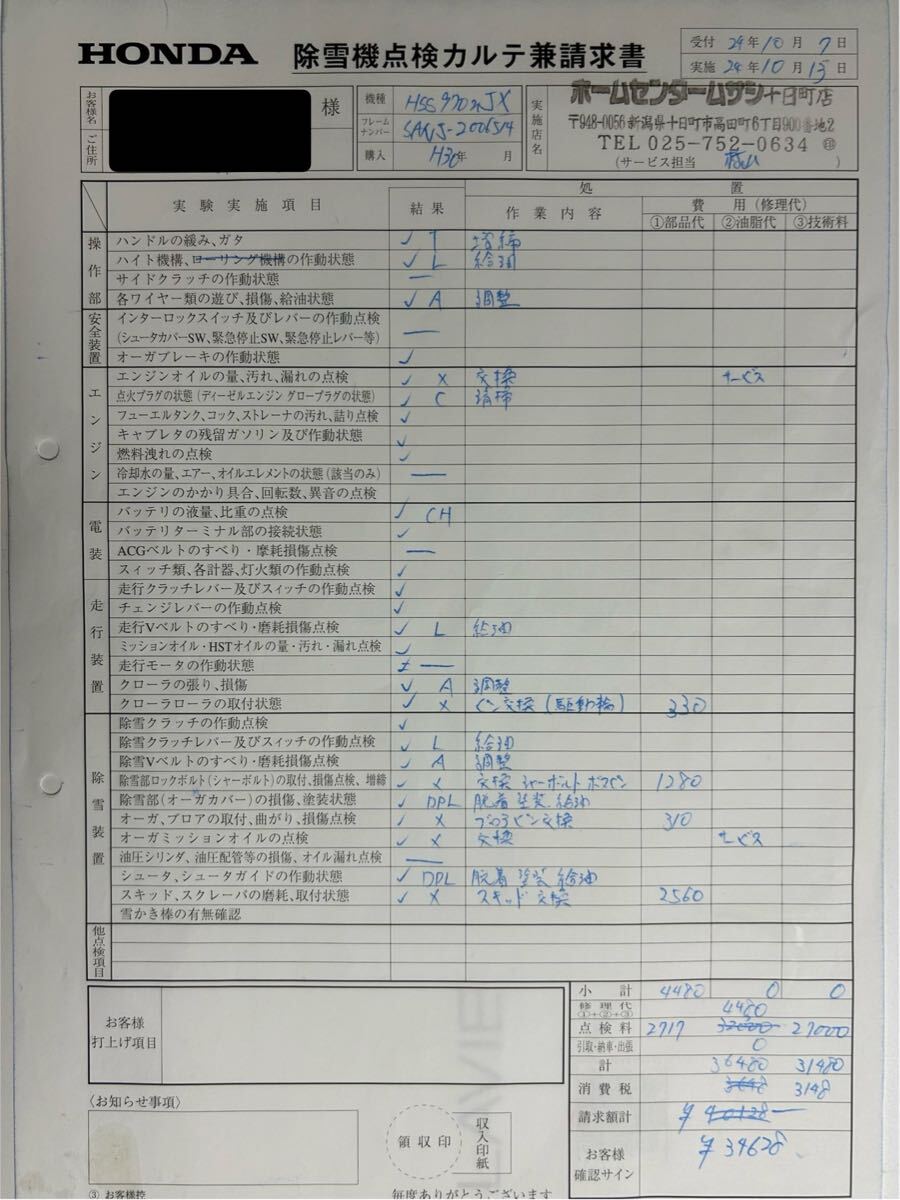 HONDA 除雪機点検カルテ兼請求書
受付 24年10月7日
実施 24年10月15日
お客様名 様
ご住所
機種 HSS970nJX
フレームナンバー SANJ-2006514
購入 H30年 月
実施店名
ホームセンタームサシ十日町店
〒948-0056 新潟県十日町市高田町6丁目900番地2
TEL 025-752-0634 ㊞
(サービス担当 )
実験実施項目 結果 処置
作業内容 費用(修理代)
①部品代 ②油脂代 ③技術料
操作部
ハンドルの緩み、ガタ ✓ T 増締
ハイト機構、ローリング機構の作動状態 ✓ L 給油
サイドクラッチの作動状態 —
各ワイヤー類の遊び、損傷、給油状態 ✓ A 調整
安全装置
インターロックスイッチ及びレバーの作動点検
(シュータカバーSW、緊急停止SW、緊急停止レバー等) —
オーガブレーキの作動状態 ✓
エンジン
エンジンオイルの量、汚れ、漏れの点検 ✓ X 交換 サービス
点火プラグの状態(ディーゼルエンジン グロープラグの状態) ✓ C 清掃
フューエルタンク、コック、ストレーナの汚れ、詰り点検 ✓
キャブレタの残留ガソリン及び作動状態 ✓
燃料洩れの点検 ✓
冷却水の量、エアー、オイルエレメントの状態(該当のみ) —
エンジンのかかり具合、回転数、異音の点検
電装
バッテリの液量、比重の点検 ✓ CH
バッテリターミナル部の接続状態 ✓
ACGベルトのすべり・摩耗損傷点検 —
スイッチ類、各計器、灯火類の作動点検 ✓
走行装置
走行クラッチレバー及びスィッチの作動点検 ✓
チェンジレバーの作動点検 ✓
走行Vベルトのすべり・磨耗損傷点検 ✓ L 給油
ミッションオイル・HSTオイルの量・汚れ・漏れ点検 ✓
走行モータの作動状態 —
クローラの張り、損傷 ✓ A 調整
クローラローラの取付状態 ✓ X ピン交換(駆動輪) 330
除雪装置
除雪クラッチの作動点検 ✓
除雪クラッチレバー及びスィッチの作動点検 ✓ L 給油
除雪Vベルトのすべり・磨耗損傷点検 ✓ A 調整
除雪部ロックボルト(シャーボルト)の取付、損傷点検、増締 ✓ X 交換 シャーボルト 1280
除雪部(オーガカバー)の損傷、塗装状態 ✓ DPL 脱着 塗装 給油
オーガ、ブロアの取付、曲がり、損傷点検 ✓ X ブロアピン交換 310
オーガミッションオイルの点検 ✓ X 交換 サービス
油圧シリンダ、油圧配管等の損傷、オイル漏れ点検 —
シュータ、シュータガイドの作動状態 ✓ DPL 脱着 塗装 給油
スキッド、スクレーパの磨耗、取付状態 ✓ X スキッド交換 2560
雪かき棒の有無確認
他点検項目
お客様打上げ項目
小計 4480 0 0
修理代①+②+③ 4480
点検料 2717 32000 27000
引取・納車・出張 0
計 36480 31480
消費税 3648 3148
請求額計 ¥40128
お客様確認サイン ¥34628
〈お知らせ事項〉
領収印
収入印紙
③ お客様控
毎度ありがとうございます